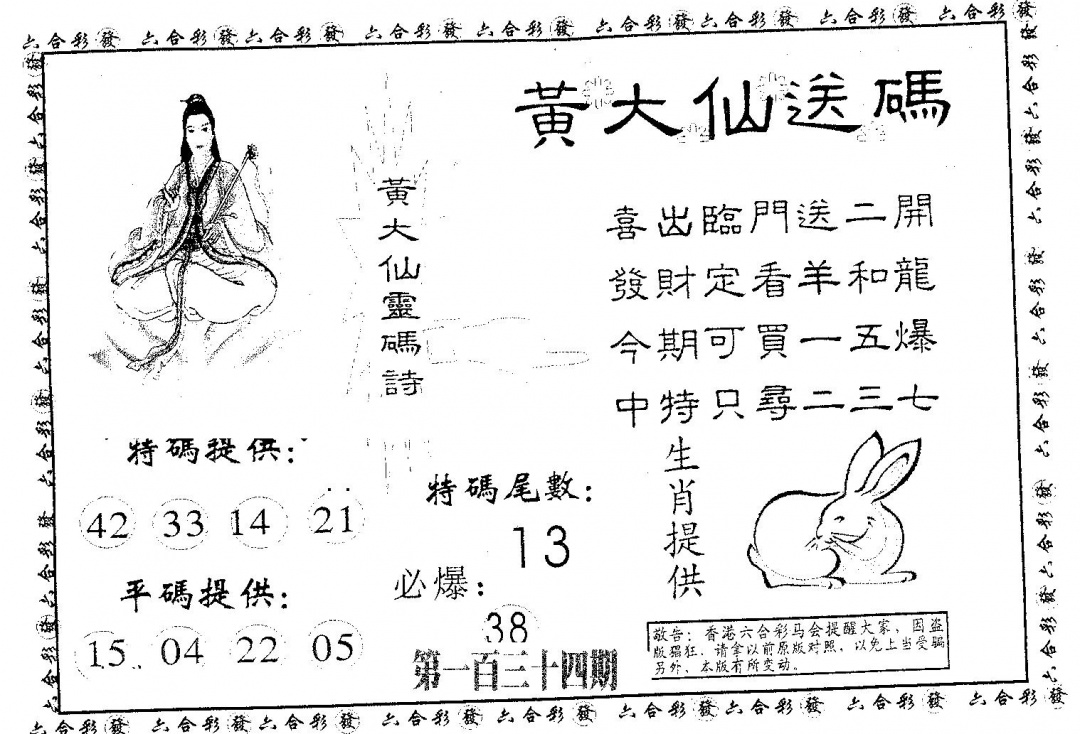 六合彩發 六合彩發六合彩發 六合彩發 六合彩發 六合彩發六合彩發 六合彩發 六合彩發
黃大仙送碼
黃大仙靈碼詩
喜出臨門送二開
發財定看羊和龍
今期可買一五爆
中特只尋二三七
特碼提供:
42 33 14 21
平碼提供:
15 04 22 05
特碼尾數:
13
必爆:
38
第一百三十四期
生肖提供
敬告:香港六合彩马会提醒大家,因盗
版猖狂,请拿以前原版对照,以免上当受骗
另外,本版有所变动。
六合彩發 六合彩發六合彩發 六合彩發 六合彩發 六合彩發六合彩發 六合彩發 六合彩發